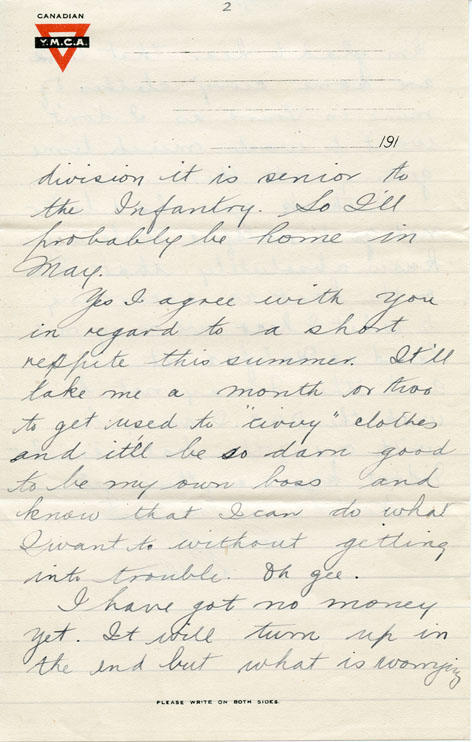 2
CANADIAN
Y.M.C.A.
191
division it is senior to
the Infantry. So I'll
probably be home in
May.
Yes I agree with you
in regard to a short
respite this summer. It'll
take me a month or two
to get used to "civvy" clothes
and it'll be so darn good
to be my own boss and
know that I can do what
I want to without getting
into trouble. Oh gee.
I have got no money
yet. It will turn up in
the end but what is worrying
PLEASE WRITE ON BOTH SIDES.